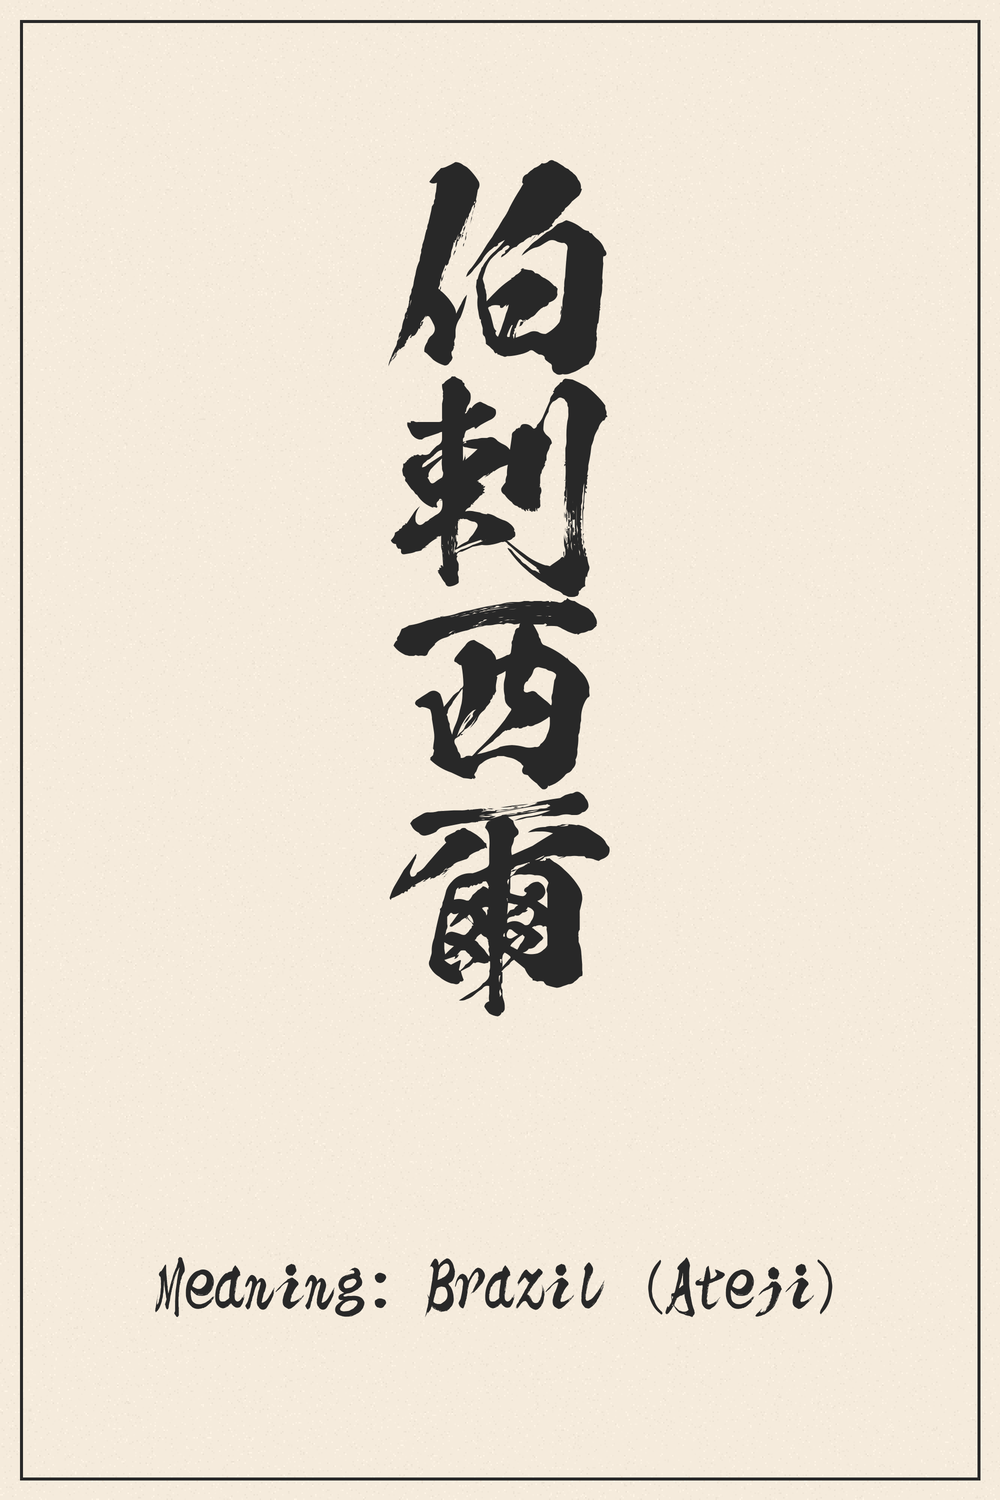 伯剌西爾
Meaning: Brazil (Ateji)